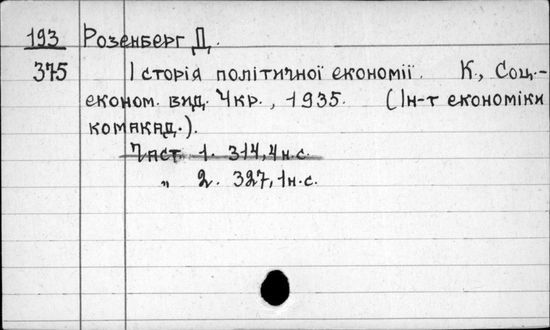 193 Розенберг Д.
375 Історія політичної економії. К., Соц.-
економ. вид. Укр., 1935. (Ін-т економіки
комакад.).
Част. 1. 314,4н.с.
„ 2. 327,1н.с.